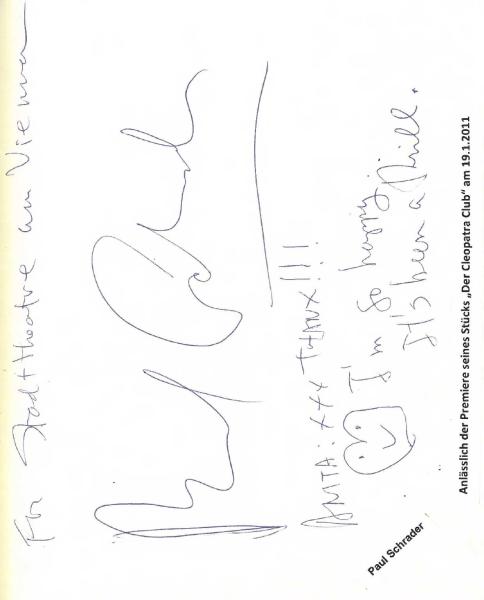 For Stadttheatre am Vienna
ANITA: XXX THANX!!!
I'm so happy
It's been a thrill.
Paul Schrader
Anlässlich der Premiere seines Stücks „Der Cleopatra Club“ am 19.1.2011